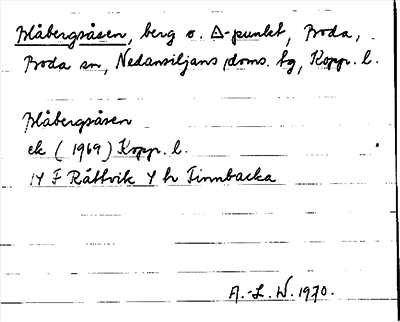 Blåbergsåsen, berg o. Δ-punkt, Boda,
Boda sn, Nedansiljans doms. tg, Kopp. l.
Blåbergsåsen
ek (1969) Kopp. l.
14 F Rättvik 4 h Finnbacka
A.-L. W. 1970.